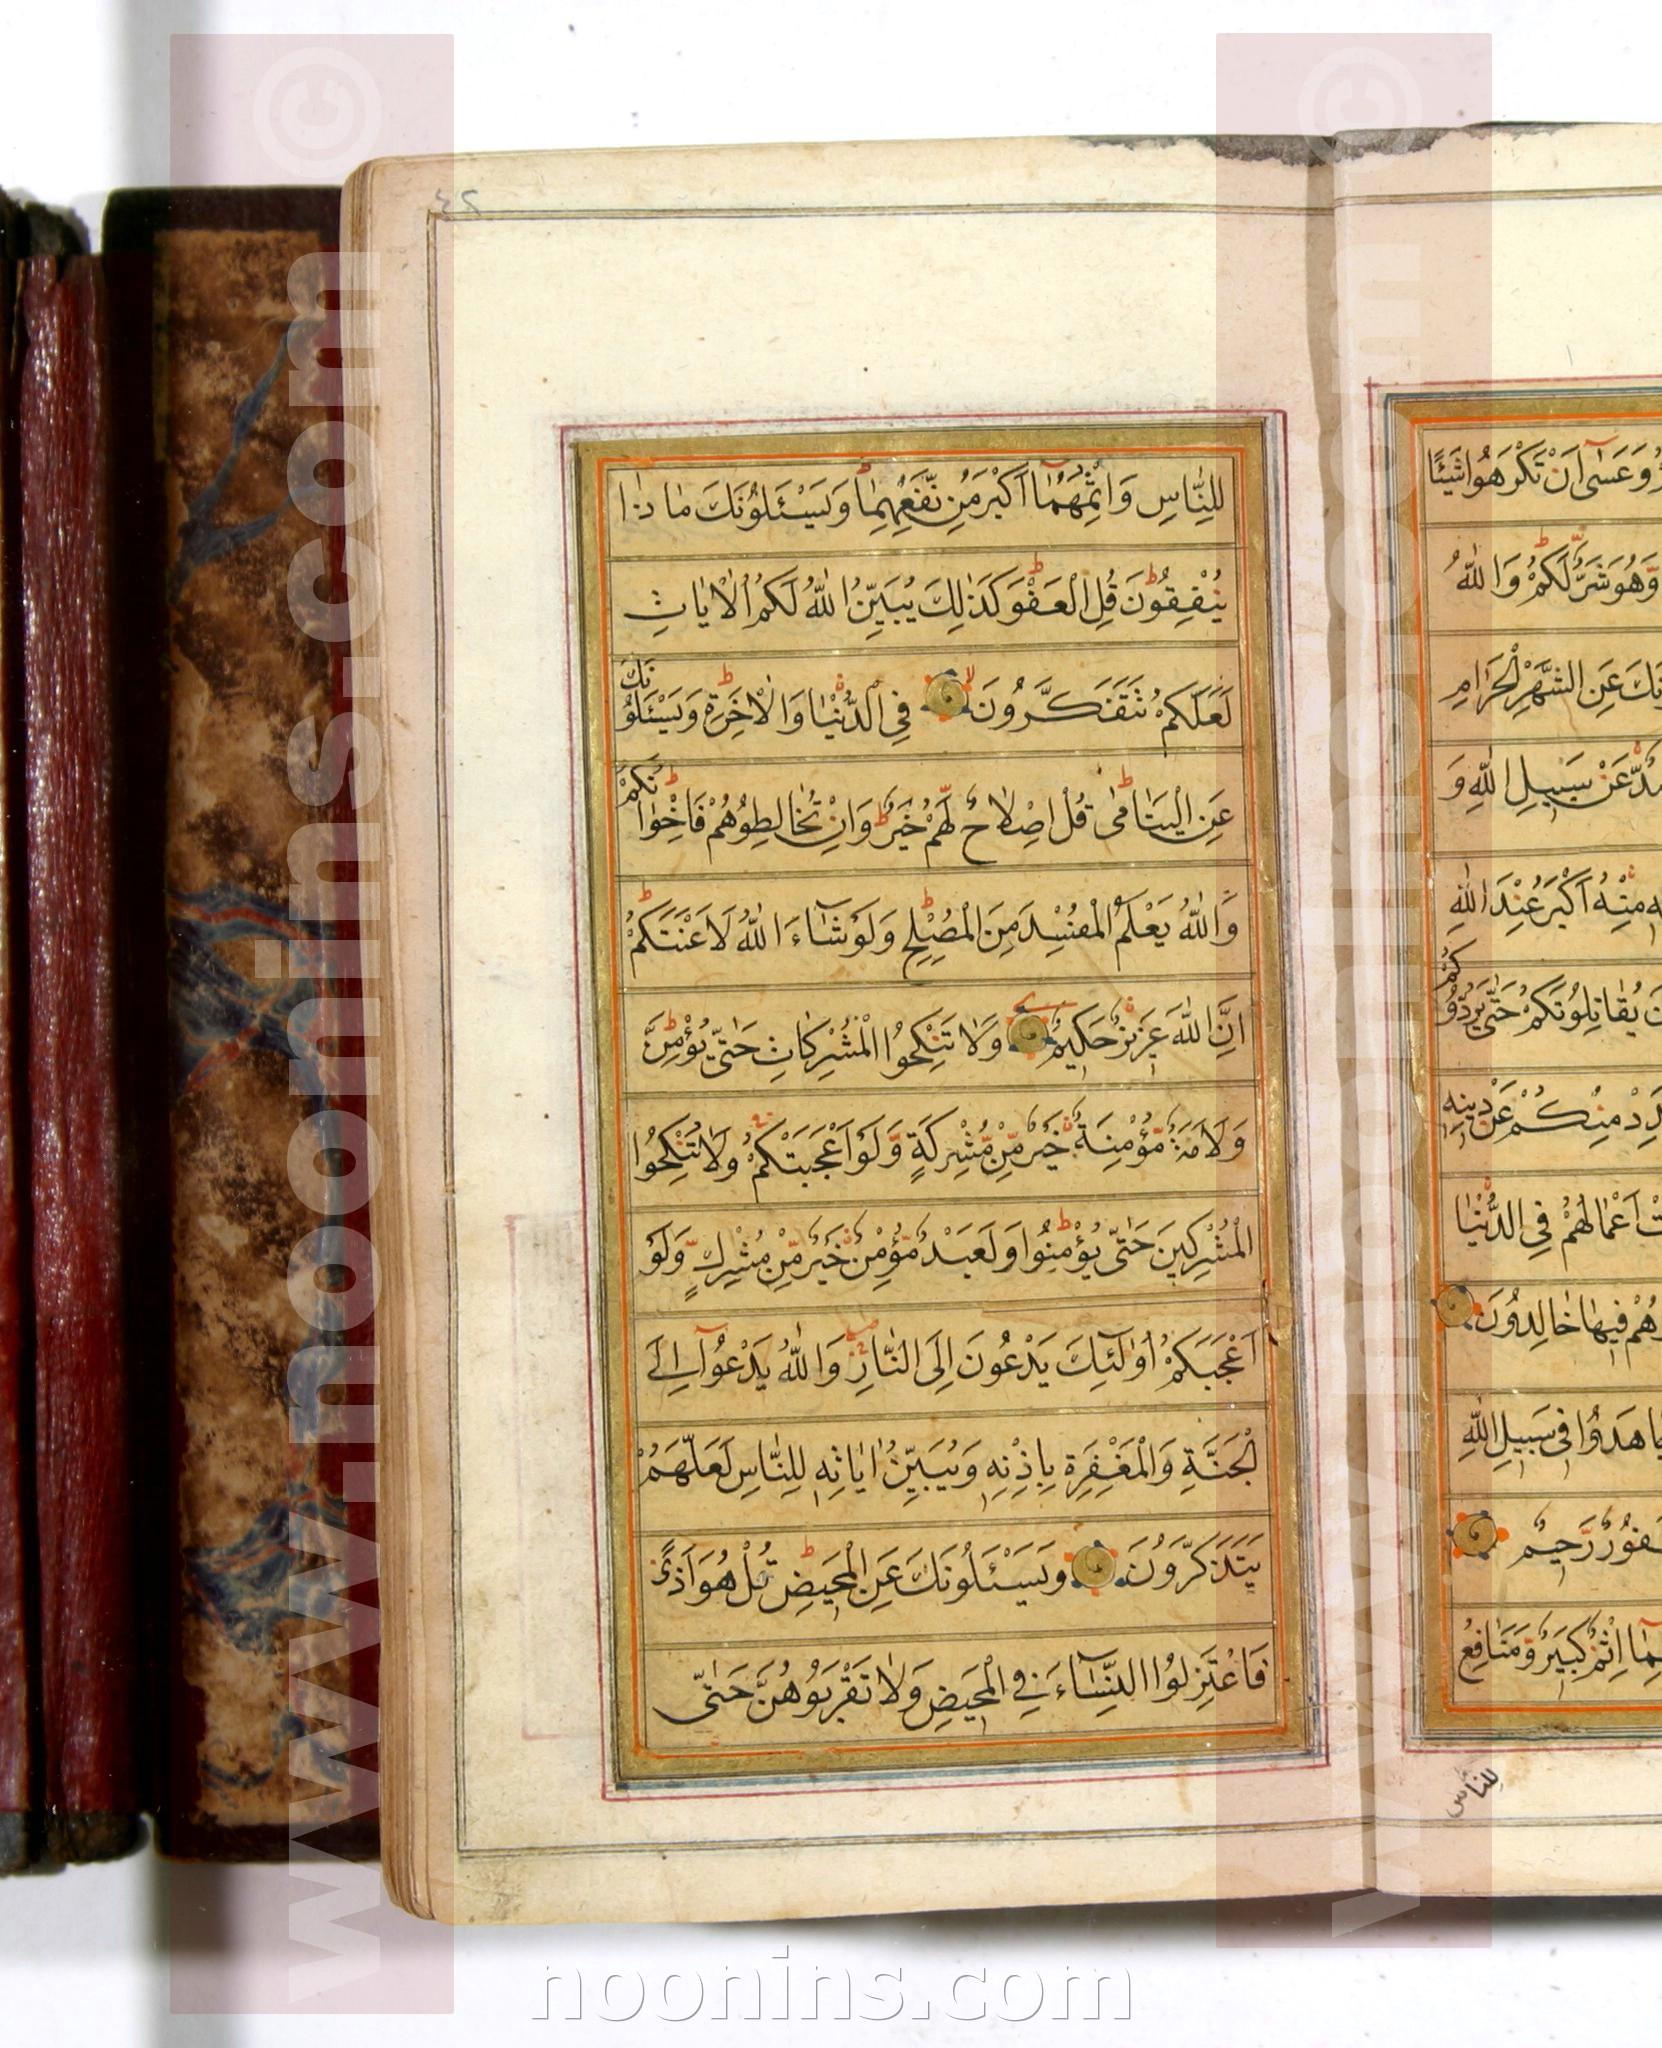 ؤ وَعَسٰٓى اَنْ تَكْرَهُوا شَيْئًا
وَّهُوَ شَرٌّ لَكُمْ وَاللّٰهُ
نَكَ عَنِ الشَّهْرِ الْحَرَامِ
صَدٌّ عَنْ سَبِيلِ اللّٰهِ وَ
مِنْهُ اَكْبَرُ عِنْدَ اللّٰهِ
يُقَاتِلُونَكُمْ حَتّٰى يَرُدُّوكُمْ
مِنْكُمْ عَنْ دِينِهِ
اَعْمَالُهُمْ فِي الدُّنْيَا
هُمْ فِيهَا خَالِدُونَ
جَاهَدُوا فِي سَبِيلِ اللّٰهِ
غَفُورٌ رَحِيمٌ
اِثْمٌ كَبِيرٌ وَّمَنَافِعُ
للناس
٤٢
لِلنَّاسِ وَاِثْمُهُمَٓا اَكْبَرُ مِنْ نَفْعِهِمَا وَيَسْـَٔلُونَكَ مَاذَا
يُنْفِقُونَ قُلِ الْعَفْوَ كَذٰلِكَ يُبَيِّنُ اللّٰهُ لَكُمُ الْاٰيَاتِ
لَعَلَّكُمْ تَتَفَكَّرُونَ فِي الدُّنْيَا وَالْاٰخِرَةِ وَيَسْـَٔلُونَكَ
عَنِ الْيَتَامٰى قُلْ اِصْلَاحٌ لَهُمْ خَيْرٌ وَاِنْ تُخَالِطُوهُمْ فَاِخْوَانُكُمْ
وَاللّٰهُ يَعْلَمُ الْمُفْسِدَ مِنَ الْمُصْلِحِ وَلَوْ شَٓاءَ اللّٰهُ لَاَعْنَتَكُمْ
اِنَّ اللّٰهَ عَزِيزٌ حَكِيمٌ وَلَا تَنْكِحُوا الْمُشْرِكَاتِ حَتّٰى يُؤْمِنَّ
وَلَاَمَةٌ مُؤْمِنَةٌ خَيْرٌ مِنْ مُشْرِكَةٍ وَّلَوْ اَعْجَبَتْكُمْ وَلَا تُنْكِحُوا
الْمُشْرِكِينَ حَتّٰى يُؤْمِنُوا وَلَعَبْدٌ مُؤْمِنٌ خَيْرٌ مِنْ مُشْرِكٍ وَّلَوْ
اَعْجَبَكُمْ اُولٰٓئِكَ يَدْعُونَ اِلَى النَّارِ وَاللّٰهُ يَدْعُٓوا اِلَى
الْجَنَّةِ وَالْمَغْفِرَةِ بِاِذْنِهِ وَيُبَيِّنُ اٰيَاتِهِ لِلنَّاسِ لَعَلَّهُمْ
يَتَذَكَّرُونَ وَيَسْـَٔلُونَكَ عَنِ الْمَحِيضِ قُلْ هُوَ اَذًى
فَاعْتَزِلُوا النِّسَٓاءَ فِي الْمَحِيضِ وَلَا تَقْرَبُوهُنَّ حَتّٰى
www.noonins.com ©
www.noonins.com ©
noonins.com